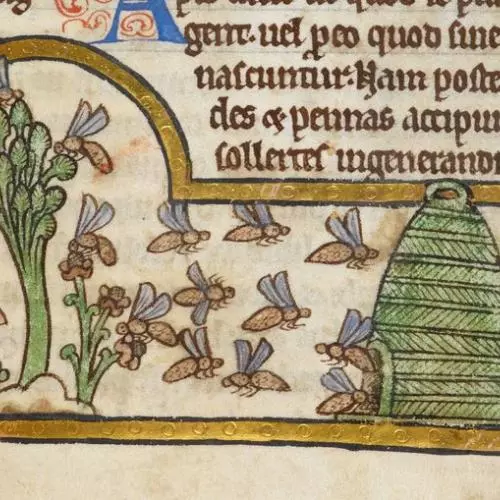 A
gent. uel ꝓ eo quod sine
nascuntur. Nam poste
des & pennas accipiu
sollertes ingenerandi